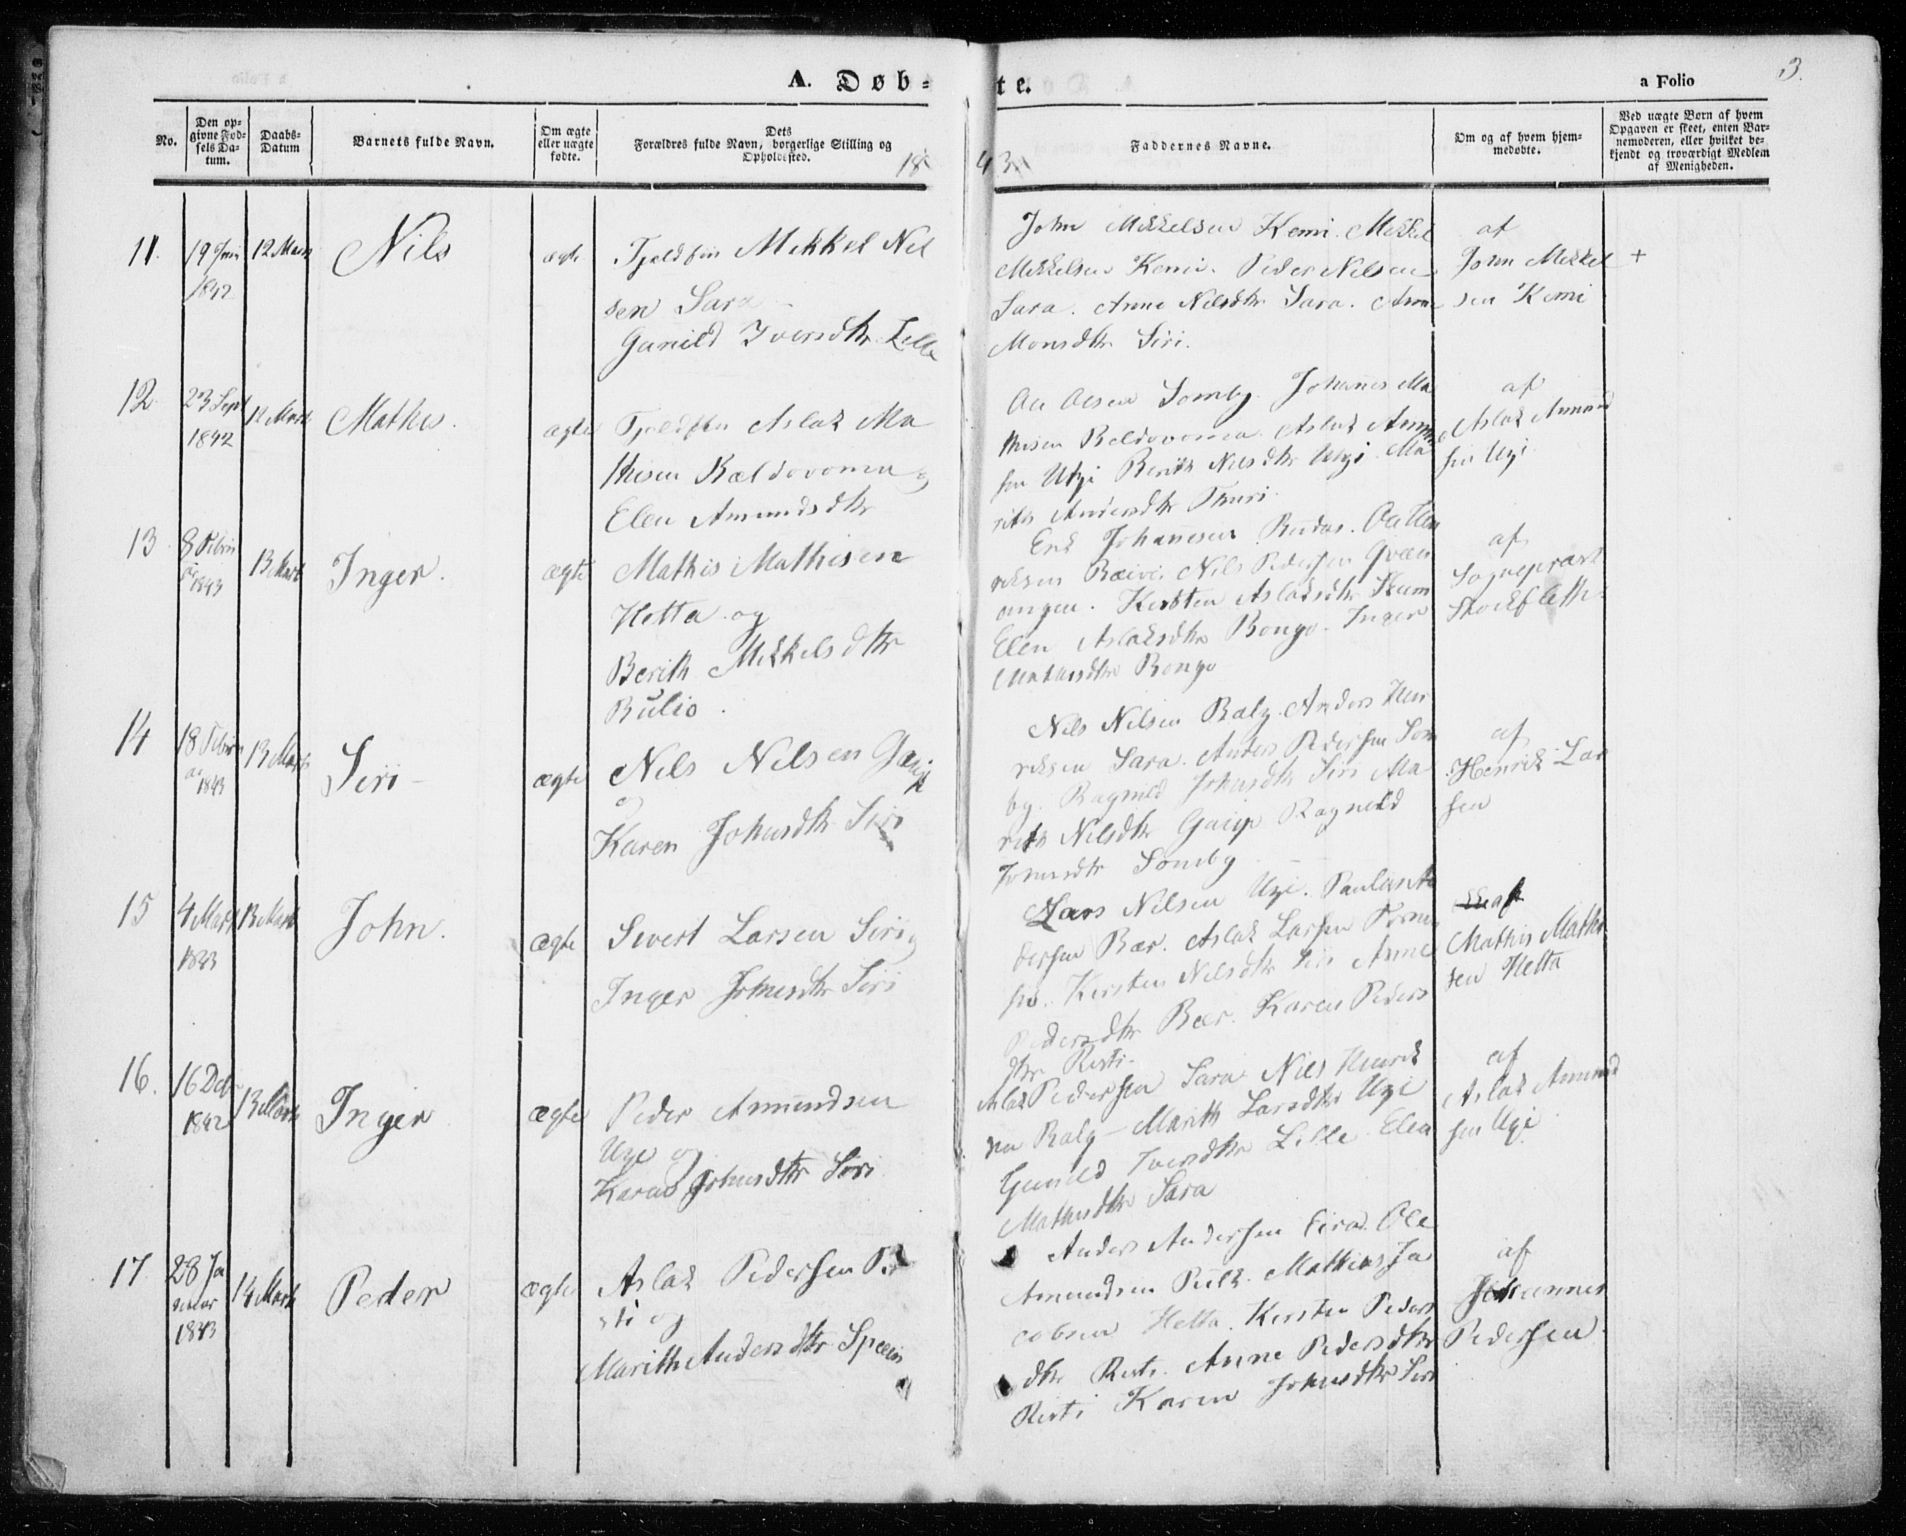 A. Døbte.
a Folio
3.
No.
Den opgivne Fødsels Datum.
Daabs-Datum
Barnets fulde Navn.
Om ægte eller uægte fødte.
Dets Forældres fulde Navn, borgerlige Stilling og Opholdssted.
Faddernes Navne.
Om og af hvem hjemmedøbte.
Ved uægte Børn af hvem Opgaven er skeet, enten Barnemoderen, eller hvilket bekjendt og troværdigt Medlem af Menigheden.
1843
11.
1842
12 Marts
Nils
ægte
Fjeldfin Mekkel Nil
sen Sara
Gunild Iversdtr Lille
John Mikkelsen Kemi. Mikkel
Mikkelsen Kemi. Peder Nilsen
Sara. Anne Nilsdtr Sara. Anne
Monsdtr Siri.
af
John Mikkel
sen Kemi
+
12
23 Sept
1842
12 Marts
Mathis.
ægte
Fjeldfin Aslak Ma
thisen Bældovoma og
Elen Amundsdtr
Ole Olsen Somby. Johannes Ma
thisen Beldovoma. Aslak Amun
sen Utzi Berith Nilsdtr Utzi. Ma
rith Andersdtr Thuri.
af
Aslak Amund
sen Uzi.
13
8 Febru
ar 1843
13 Marts
Inger.
ægte
Mathis Mathisen
Hetta og
Berith Mikkelsdtr
Bulio.
Erik Johannesen Budas. Ole Hen
riksen Bæivi. Nils Pedersen Qvæn
angen. Kirsten Aslaksdtr Skum
Elen Aslaksdtr Bongo. Inger
Mathisdtr Bongo
af
Sognepræst
Stockfleth.
14
18 Febru
ar 1843
13 Marts
Siri
ægte
Nils Nilsen Gaup
og
Karen Johnsdtr Siri
Nils Nilsen Balg. Anders Hen
riksen Sara. Anders Pedersen Som
by. Ragnild Johnsdtr Siri Ma
rith Nilsdtr Gaup Ragnild
Johnsdtr Somby
af
Henrik Lar
sen
15
4 Marts
1843
13 Marts
John.
ægte
Sivert Larsen Siri og
Inger Johnsdtr Siri
Lars Nilsen Uzi. Paul An
dersen Bær. Aslak Larsen
Kirsten Nilsdtr Siri Anne
Pedersdtr Bær. Karen Peders
dtr Risti.
af
Mathis Mathi
sen Hetta
16.
16 Debr
1842
13 Marts
Inger
ægte
Peder Amundsen
Uzi og
Karen Johnsdtr Siri
Aslak Pedersen Sara Nils Henrik
sen Balg - Marith Larsdtr Uzi
Gunild Iversdtr Lille. Elen
Mathisdtr Sara
af
Aslak Amund
sen Uzi
17
28 Ja
nuar
1843
14 Marts
Peder
ægte
Aslak Pedersen Ri
sti og
Marith Andersdtr Spein
Anders Andersen Eira. Ole
Amundsen Pulk. Mathias Ja
cobsen Hetta. Kirsten Peders
dtr Risti. Anne Pedersdtr
Risti Karen Johnsdtr Siri
af
Johannes
Pedersen